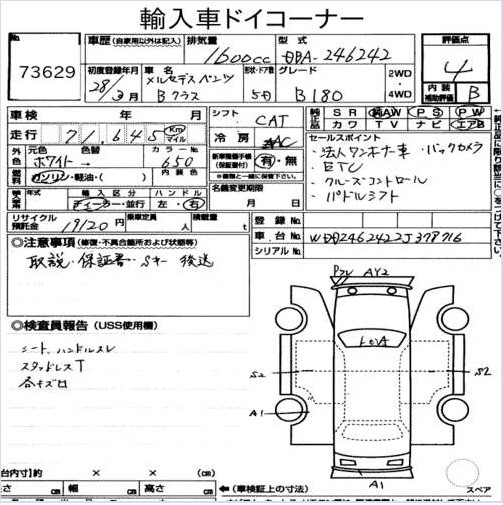 輸入車ドイツコーナー
No.
73629
車歴 (自家用以外は記入)
排気量
1600cc
型式
DBA-246242
評価点
4
内装補助評価
B
初度登録年月
28/3月
車名
メルセデスベンツ
Bクラス
形状・ドア数
5D
グレード
B180
2WD・4WD
車検 年 月
シフト
CAT
純正品
SR 純AW PS PW
カワ TV ナビ エアB
走行 71,645 Km マイル
冷房
AAC
セールスポイント
・法人ワンオーナー車・バックカメラ
・ETC
・クルーズコントロール
・パドルシフト
外色
元色 色替 カラーNo.
ホワイト→ 650
新車整備手帳
(保証書付)
有・無
燃料
ガソリン・軽油・( )
内装色
名義変更期限
月 日
輸入車
年式
輸入区分
ハンドル
ディーラー・並行
左・右
リサイクル預託金
19120円
乗車定員 人
積載量 t
登録No.
車台No.
WDD2462422J378716
シリアルNo.
◎注意事項 (修復・不具合箇所および状態等)
取説・保証書・Sキー 後送
◎検査員報告 (USS使用欄)
シート、ハンドルスレ
スタッドレスT
各キズ有
プレ AY2
S2
S2
A1
A1
スペア
(荷台内寸)約 × × (cm)
長さ 幅 (cm) 高さ (cm)
←(車検証上の寸法)